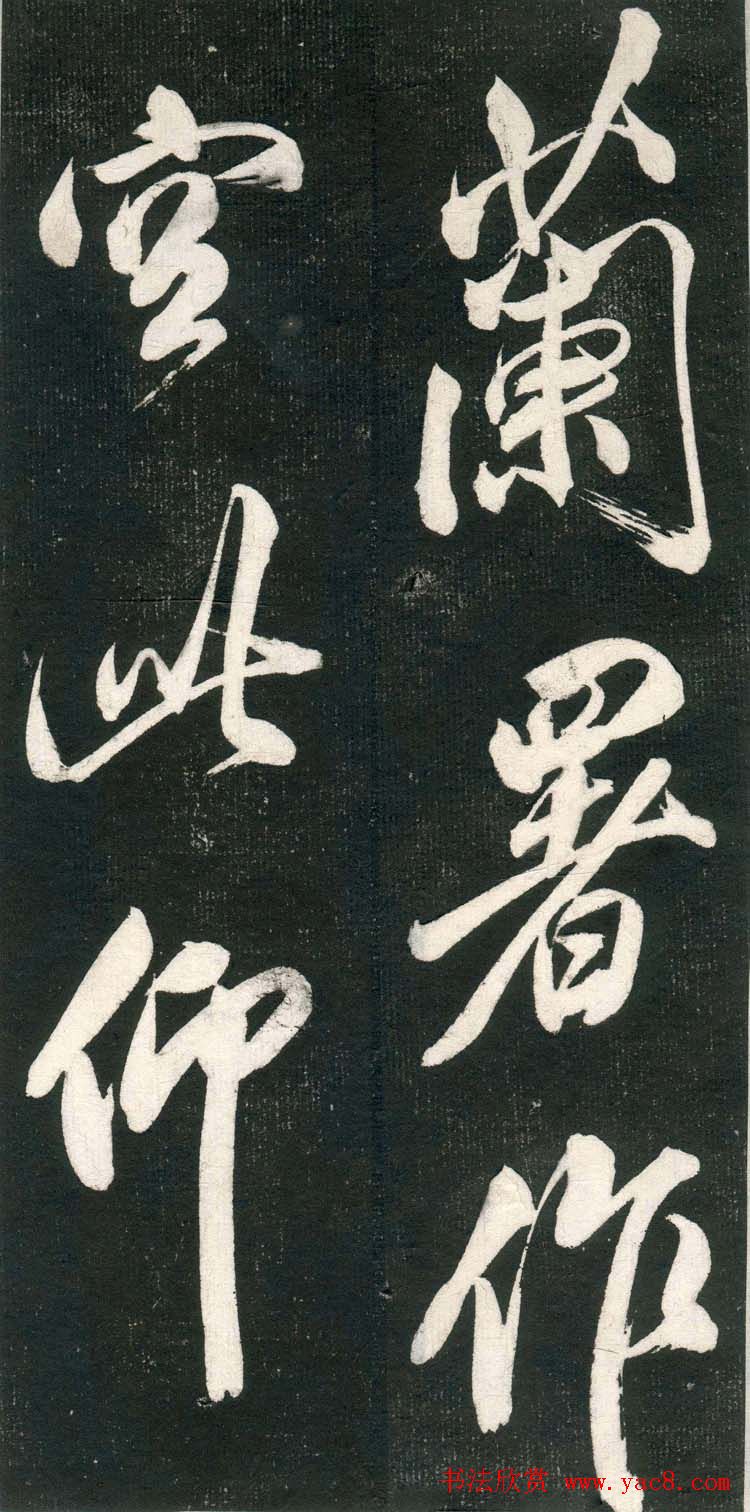 蘭署作
宫此仰
书法欣赏 www.yac8.com